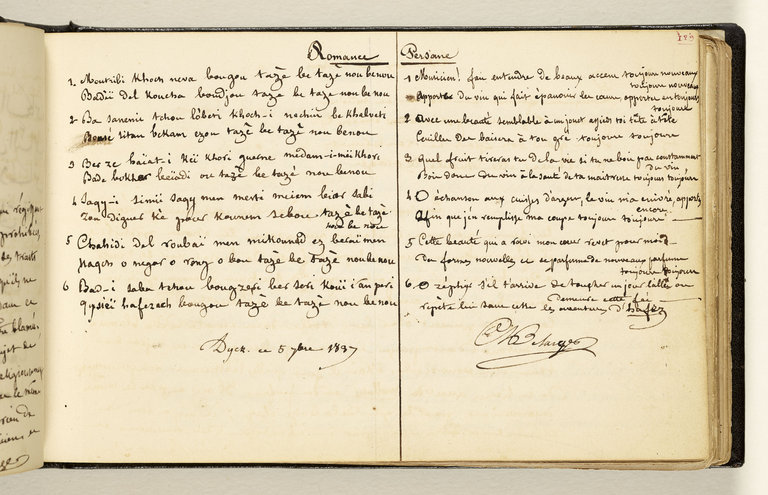 Romance
1. Moutribi khoch neva bougou tazè be tazè nou be nou
Badèi del koucha boudjou tazè be tazè nou be nou
2. Ba sanemi tchou lobeti khoch-i nechin be khalveti
Bousè sitan bekam ezou tazè be tazè nou benou
3 Ber ze haïat-i kèi khori guerne médam-i-mèi khori
Bade bokhor beïadi ou tazè be tazè nou benou
4 Saqy-i simii saqy men mesti meiem biar sabi
Zou diguer ke qacer kounem sebou tazè be tazè
nou be nou
5 Chahidi del roubaï men mikouned ez beraï men
Naqch o negar o rong o bou tazè be tazè nou be nou
6 Bad-i saba tchou bougzeri ber seri kouii an peri
qyssèi hafezech bougou tazè be tazè nou be nou
Dyck. ce 5 7bre 1837
Persane
189
1 Musicien! fais entendre de beaux accens toujours nouveaux
toujours nouveaux
Apporte du vin qui fait épanouir les cœurs, apporte en toujours
toujours
2 Avec une beauté semblable à un jouet assieds toi tête à tête
Cueilles des baisers à ton gré toujours toujours
3 Quel fruit tireras tu de la vie si tu ne bois pas constamment
du vin
Bois donc du vin à la santé de ta maitresse toujours toujours
4 O échanson aux cuisses d'argent, le vin m'a enivré, apportes
encore
Afin que j'en remplisse ma coupe toujours toujours
5 Cette beauté qui a ravi mon cœur revet pour moi
Des formes nouvelles et se parfume de nouveaux parfums
toujours toujours
6. O zéphir s'il t'arrive de toucher un jour l'allée ou
demeure cette fée
répète lui sans cesse les aventures d'hafez